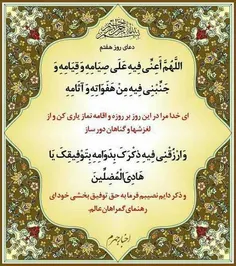 دعای روز هفتم
اللَّهُمَّ أَعِنِّي فِيهِ عَلَى صِيَامِهِ وَقِيَامِهِ وَ
جَنِّبْنِي فِيهِ مِنْ هَفَوَاتِهِ وَ آثَامِهِ
ای خدا مرا در این روز بر روزه و اقامه نماز یاری کن و از
لغزشها و گناهان دور ساز
وَارْزُقْنِي فِيهِ ذِكْرَكَ بِدَوَامِهِ بِتَوْفِيقِكَ يَا
هَادِيَ الْمُضِلِّينَ
و ذکر دایم نصیبم فرما به حق توفیق بخشی خود ای
رهنمای گمراهان عالم.